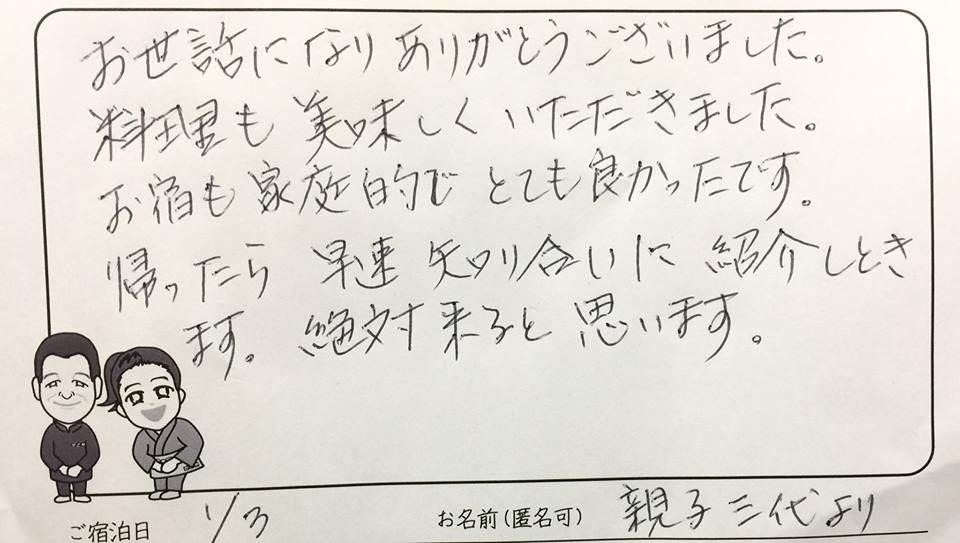 お世話になりありがとうございました。
料理も美味しくいただきました。
お宿も家庭的でとても良かったです。
帰ったら早速知り合いに紹介しとき
ます。絶対来ると思います。
ご宿泊日 1/3 お名前(匿名可) 親子三代より